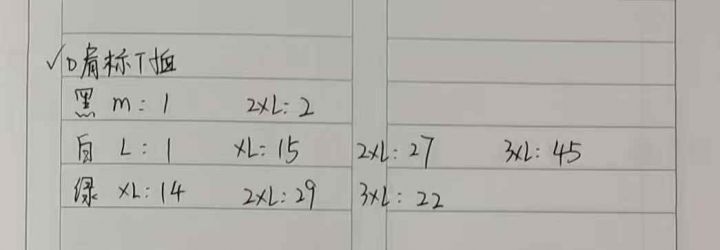 √D肩标T恤
黑 m: 1 2XL: 2
白 L: 1 XL: 15 2XL: 27 3XL: 45
绿 XL: 14 2XL: 29 3XL: 22